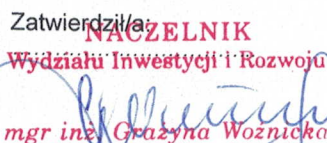 Zatwierdził/a:
NACZELNIK
Wydziału Inwestycji i Rozwoju
mgr inż. Grażyna Woźnicka